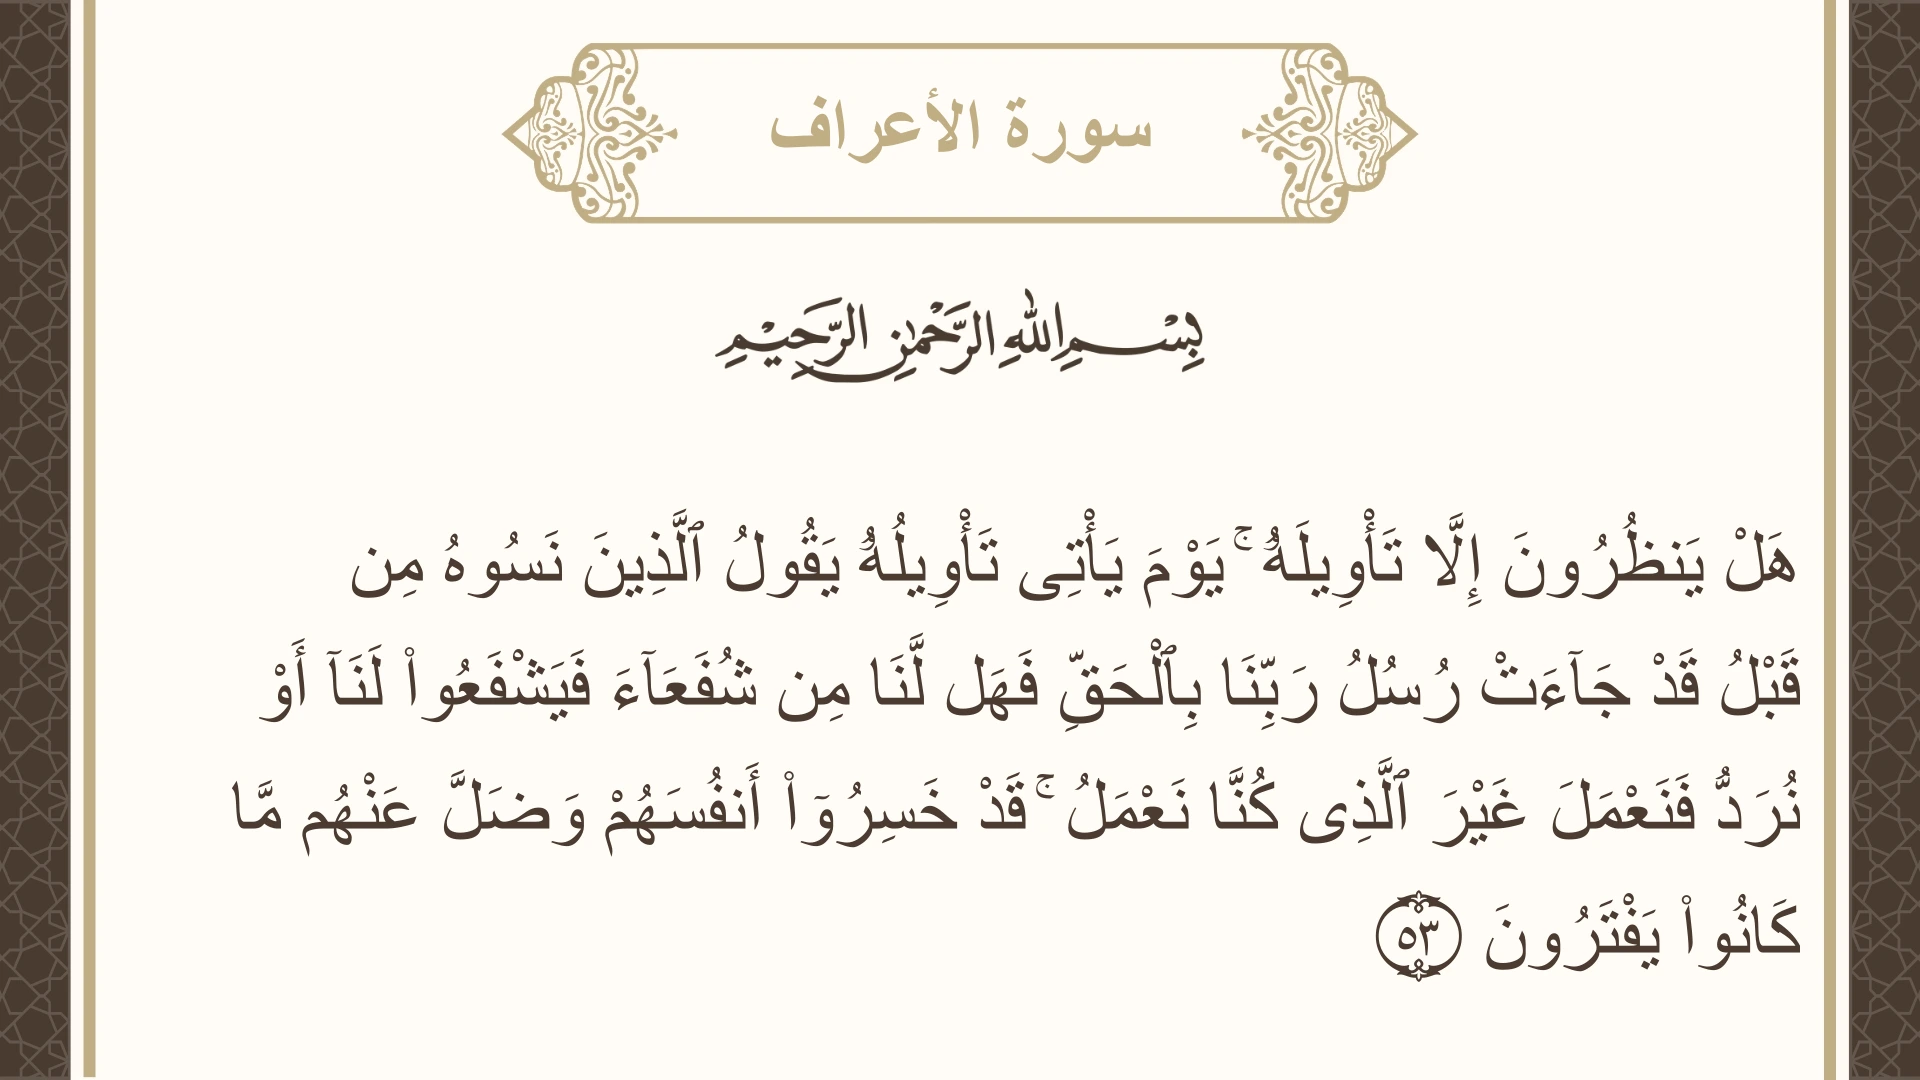 سورة الأعراف
بِسْمِ اللهِ الرَّحْمٰنِ الرَّحِيْمِ
هَلْ يَنظُرُونَ إِلَّا تَأْوِيلَهُۥ ۚ يَوْمَ يَأْتِى تَأْوِيلُهُۥ يَقُولُ ٱلَّذِينَ نَسُوهُ مِن
قَبْلُ قَدْ جَآءَتْ رُسُلُ رَبِّنَا بِٱلْحَقِّ فَهَل لَّنَا مِن شُفَعَآءَ فَيَشْفَعُوا۟ لَنَآ أَوْ
نُرَدُّ فَنَعْمَلَ غَيْرَ ٱلَّذِى كُنَّا نَعْمَلُ ۚ قَدْ خَسِرُوٓا۟ أَنفُسَهُمْ وَضَلَّ عَنْهُم مَّا
كَانُوا۟ يَفْتَرُونَ ٥٣